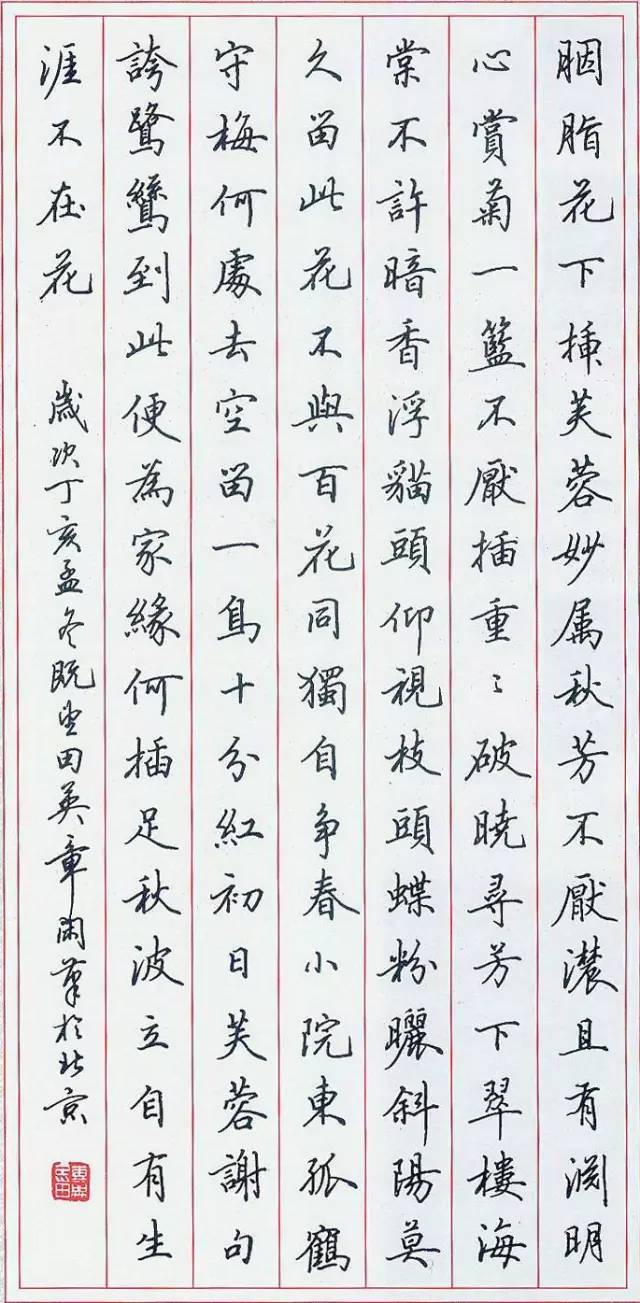 胭脂花下插芙蓉妙属秋芳不厭濃且有渊明
心賞菊一籃不厭插重〻破曉尋芳下翠樓海
棠不許暗香浮貓頭仰視枝頭蝶粉曬斜陽莫
久留此花不與百花同獨自争春小院東孤鶴
守梅何處去空留一鳥十分紅初日芙蓉謝句
誇鷺鷥到此便為家緣何插足秋波立自有生
涯不在花 歲次丁亥孟冬既望田英章閑筆於北京